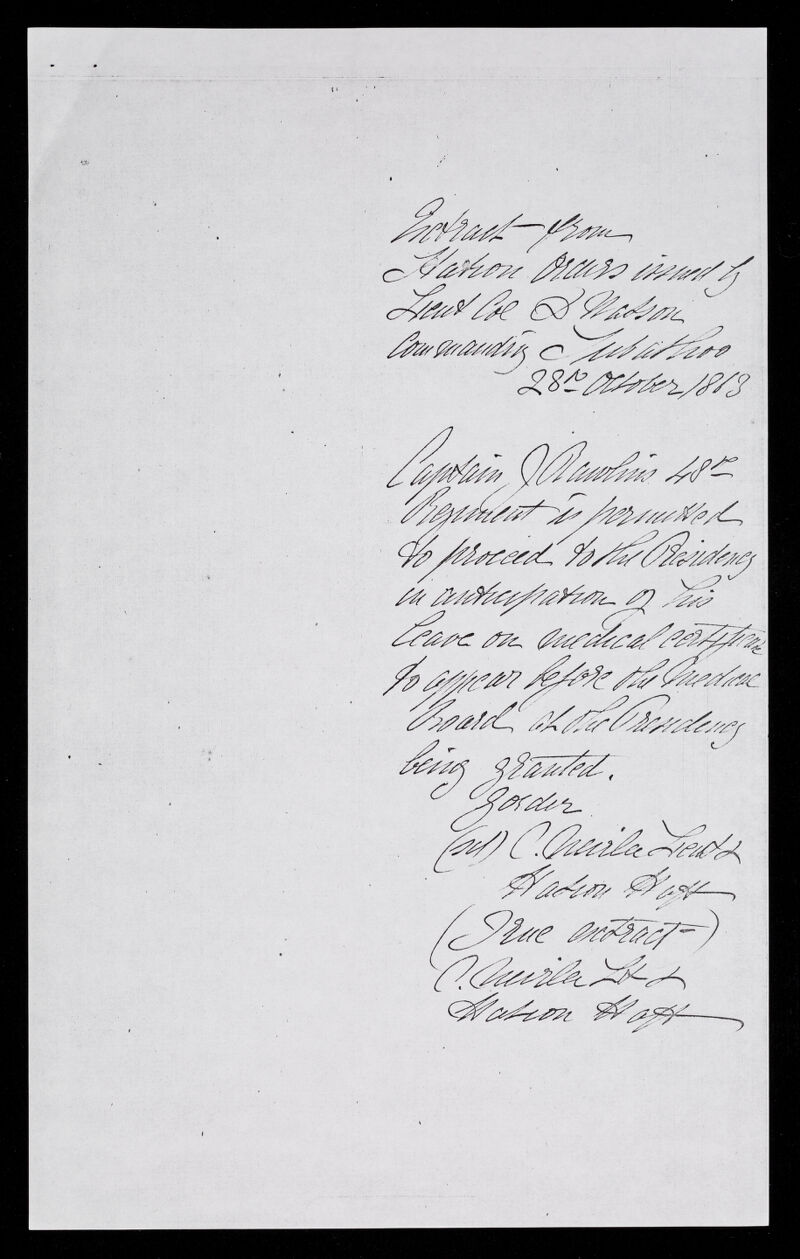 Extract from
Station Orders issued by
Lieut Col D Watson
Commanding Subathoo
28th October 1863
Captain J Rawlins 48th
Regiment is permitted
to proceed to the Presidency
in anticipation of his
leave on medical certificate
to appear before the Medical
Board at the Presidency
being granted.
order
(sd) C. Lieut &
Station Staff
(True extract)
C. Lt &
Station Staff